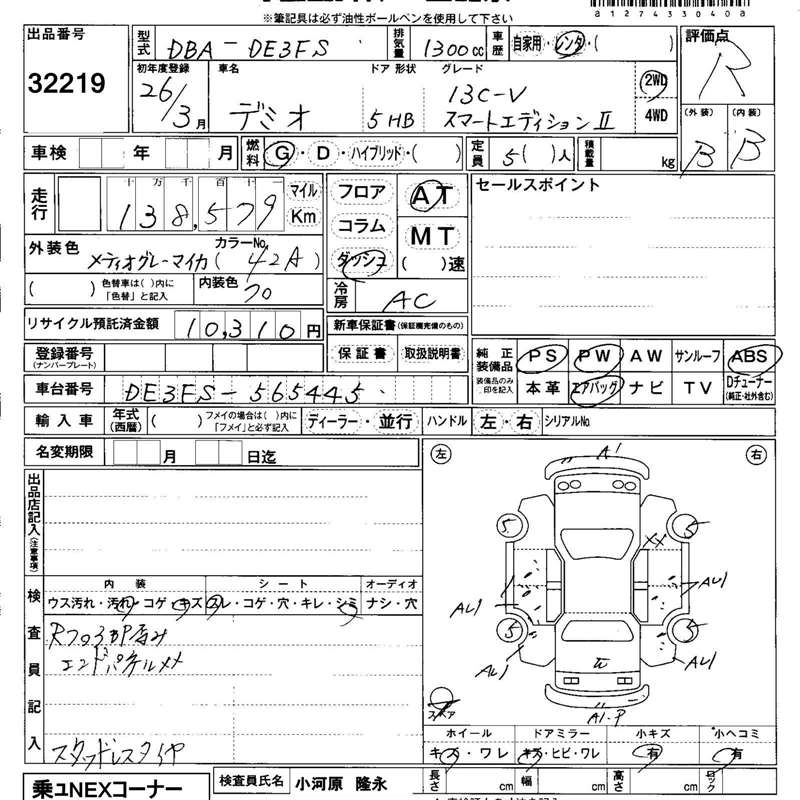 ※筆記具は必ず油性ボールペンを使用して下さい
a127433040a
出品番号 32219
型式 DBA-DE3FS 排気量 1300cc 車歴 自家用・レンタ・( )
評価点 R
初年度登録 26/3月 車名 デミオ ドア形状 5HB グレード 13C-V スマートエディションⅡ 2WD 4WD
(外装) B (内装) B
車検 年 月 燃料 G・D・ハイブリッド・( ) 定員 5( )人 積載量 kg
走行 十万千百十一 138,579 マイル Km
フロア コラム ダッシュ AT MT ( )速
セールスポイント
外装色 メティオグレーマイカ カラーNo.(42A)
( ) 色替車は( )内に「色替」と記入 内装色 クロ
冷房 AC
リサイクル預託済金額 10,310円
新車保証書(保証欄完備のもの)
保証書 取扱説明書
登録番号(ナンバープレート)
純正装備品 PS PW AW サンルーフ ABS
装備品のみ印を記入 本革 エアバッグ ナビ TV Dチューナー(純正・社外含む)
車台番号 DE3FS-565445
輸入車 年式(西暦) ( ) フメイの場合は( )内に「フメイ」と必ず記入 ディーラー・並行 ハンドル 左・右 シリアルNo.
名変期限 月 日迄
左 右
出品店記入(注意事項)
検査員記入
内装 シート オーディオ
ウス汚れ・汚れ・コゲ・キズ スレ・コゲ・穴・キレ・シミ ナシ・穴
エンドパネルメ
スタッドレスタイヤ
A1
5 5
XX
A41 A41
5 5
A41 A41
W
A1-P
スペア
ホイール ドアミラー 小キズ 小ヘコミ
キズ・ワレ キズ・ヒビ・ワレ 有 有
乗ユNEXコーナー
検査員氏名 小河原 隆永
長さ cm 幅 cm 高さ cm ロック